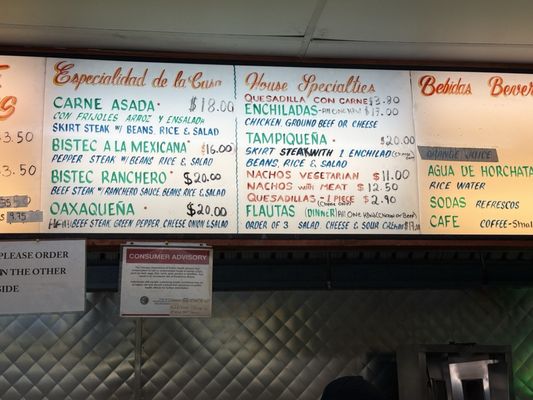 3.50
3.50
3.75
Especialidad de la Casa
CARNE ASADA $18.00
CON FRIJOLES ARROZ Y ENSALADA
SKIRT STEAK W/ BEANS, RICE & SALAD
BISTEC A LA MEXICANA $16.00
PEPPER STEAK W/ BEANS, RICE & SALAD
BISTEC RANCHERO $20.00
BEEF STEAK W/ RANCHERO SAUCE, BEANS RICE & SALAD
OAXAQUEÑA $20.00
BEEF STEAK, GREEN PEPPER CHEESE ONION & SALAD
House Specialties
QUESADILLA CON CARNE 13.80
ENCHILADAS
CHICKEN GROUND BEEF OR CHEESE
TAMPIQUEÑA $20.00
SKIRT STEAK WITH 1 ENCHILADA
BEANS, RICE & SALAD
NACHOS VEGETARIAN $11.00
NACHOS WITH MEAT $12.50
QUESADILLAS - 1 PIECE $2.90
FLAUTAS (DINNER)
ORDER OF 3 SALAD CHEESE & SOUR
Bebidas
ORANGE JUICE
AGUA DE HORCHATA
RICE WATER
SODAS REFRESCOS
CAFE COFFEE-Small
PLEASE ORDER
IN THE OTHER
SIDE
CONSUMER ADVISORY